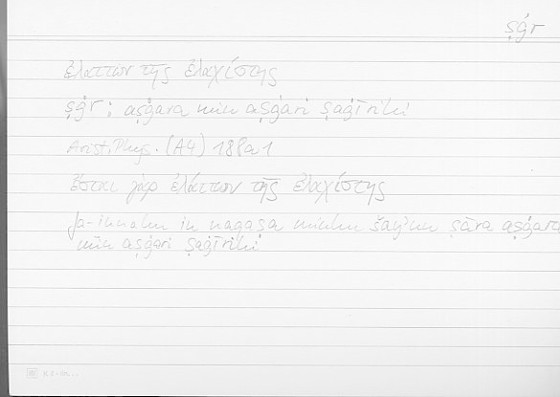 ṣġr
ἐλάττων τῆς ἐλαχίστης
ṣġr : aṣġara min aṣġari ṣaġīrihi
Arist. Phys. (A4) 188a1
ἔσται γὰρ ἐλάττων τῆς ἐλαχίστης
fa-innahu in naqaṣa minhu šayʾun ṣāra aṣġara
min aṣġari ṣaġīrihi